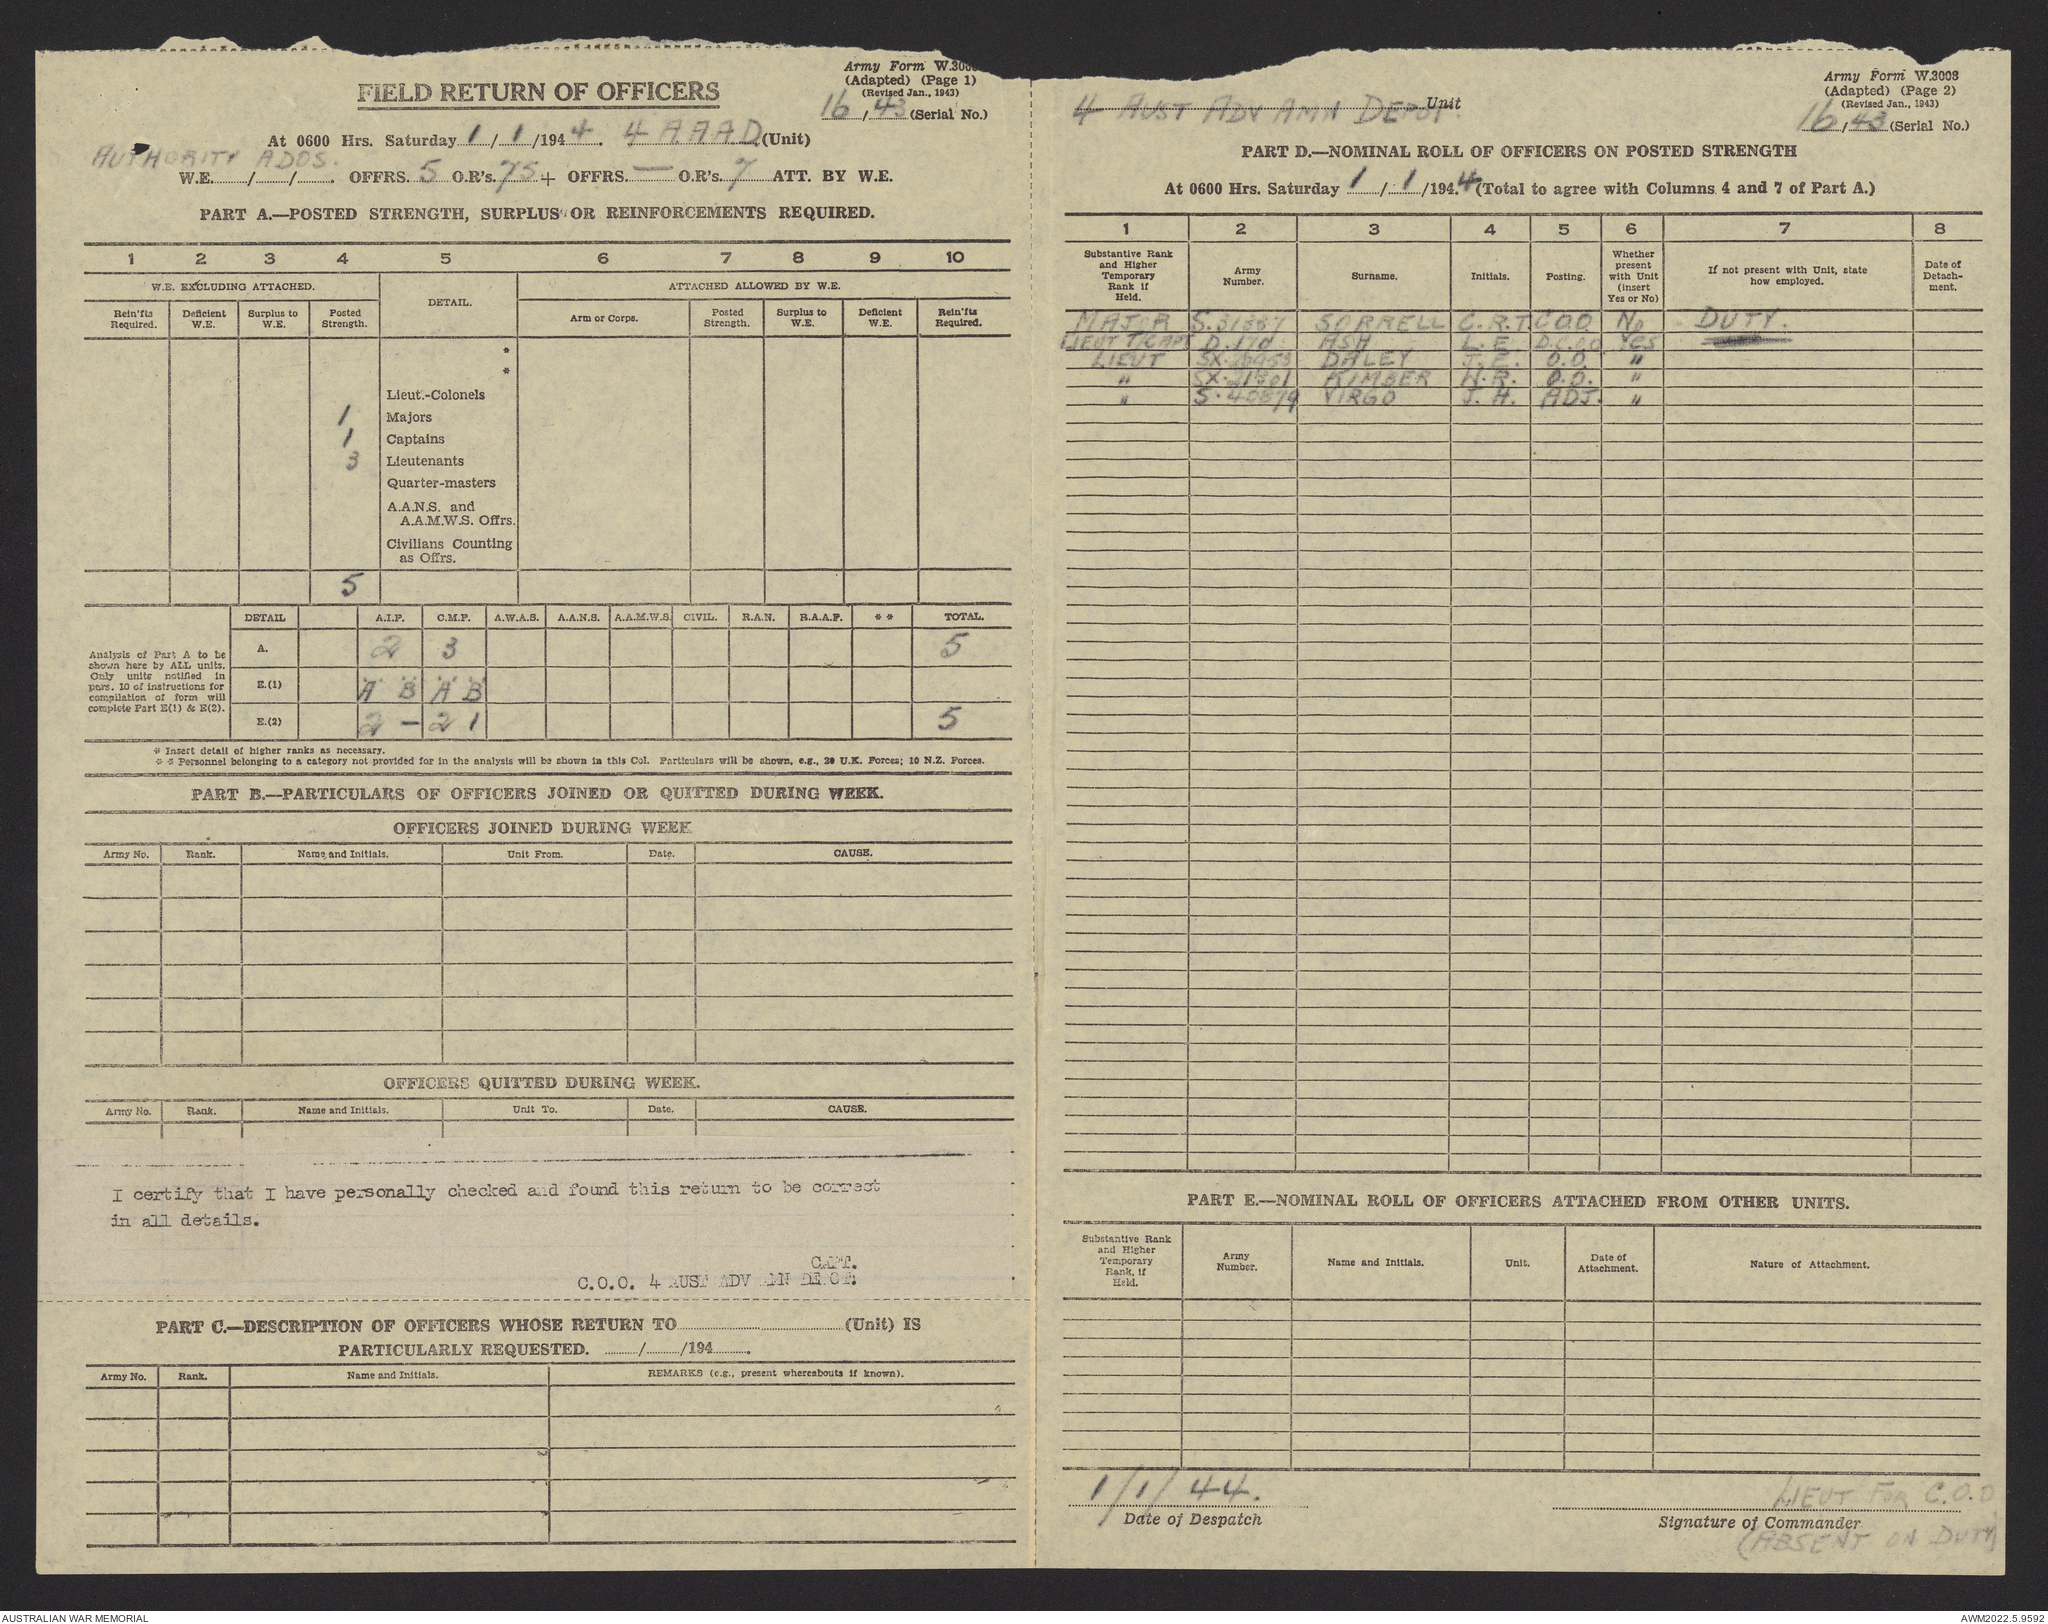 Army Form W.3008
(Adapted) (Page 1)
(Revised Jan., 1943)
FIELD RETURN OF OFFICERS
16/43 (Serial No.)
At 0600 Hrs. Saturday 1/1/1944. 4 A.A.A.D. (Unit)
AUTHORITY ADOS.
W.E. / / . OFFRS. 5 O.R's. 75 + OFFRS. — O.R's. 7 ATT. BY W.E.
PART A.—POSTED STRENGTH, SURPLUS OR REINFORCEMENTS REQUIRED.
1 2 3 4 5 6 7 8 9 10
W.E. EXCLUDING ATTACHED. DETAIL. ATTACHED ALLOWED BY W.E.
Rein'fts Required. Deficient W.E. Surplus to W.E. Posted Strength. Arm or Corps. Posted Strength. Surplus to W.E. Deficient W.E. Rein'fts Required.
*
*
Lieut.-Colonels
1 Majors
1 Captains
3 Lieutenants
Quarter-masters
A.A.N.S. and
A.A.M.W.S. Offrs.
Civilians Counting
as Offrs.
5
DETAIL A.I.F. C.M.F. A.W.A.S. A.A.N.S. A.A.M.W.S. CIVIL. R.A.N. R.A.A.F. * * TOTAL.
Analysis of Part A to be
shown here by ALL units.
Only units notified in
para. 10 of instructions for
compilation of form will
complete Part E(1) & E(2).
A. 2 3 5
E.(1) "A" "B" "A" "B"
E.(2) 2 — 2 1 5
* Insert detail of higher ranks as necessary.
* * Personnel belonging to a category not provided for in the analysis will be shown in this Col. Particulars will be shown, e.g., 20 U.K. Forces; 10 N.Z. Forces.
PART B.—PARTICULARS OF OFFICERS JOINED OR QUITTED DURING WEEK.
OFFICERS JOINED DURING WEEK
Army No. Rank. Name and Initials. Unit From. Date. CAUSE.
OFFICERS QUITTED DURING WEEK.
Army No. Rank. Name and Initials. Unit To. Date. CAUSE.
I certify that I have personally checked and found this return to be correct
in all details.
CAPT.
C.O.O. 4 AUST ADV AMN DEPOT.
PART C.—DESCRIPTION OF OFFICERS WHOSE RETURN TO (Unit) IS
PARTICULARLY REQUESTED. / /194 .
Army No. Rank. Name and Initials. REMARKS (e.g., present whereabouts if known).
Army Form W.3008
(Adapted) (Page 2)
(Revised Jan., 1943)
4 AUST ADV AMN DEPOT. Unit
16/43 (Serial No.)
PART D.—NOMINAL ROLL OF OFFICERS ON POSTED STRENGTH
At 0600 Hrs. Saturday 1/1/1944 (Total to agree with Columns 4 and 7 of Part A.)
1 2 3 4 5 6 7 8
Substantive Rank and Higher Temporary Rank if Held. Army Number. Surname. Initials. Posting. Whether present with Unit (insert Yes or No) If not present with Unit, state how employed. Date of Detach-ment.
MAJOR S.31387 SORRELL C.R.T. C.O.O. No DUTY.
LIEUT T/CAPT D.170 ASH L.E. D.C.O.O YES
LIEUT DALEY J.E. O.O. "
" SX.21301 KIMBER W.R. O.O. "
" S.40879 VIRGO J.H. ADJ. "
PART E.—NOMINAL ROLL OF OFFICERS ATTACHED FROM OTHER UNITS.
Substantive Rank and Higher Temporary Rank, if Held. Army Number. Name and Initials. Unit. Date of Attachment. Nature of Attachment.
1/1/44.
Date of Despatch
LIEUT FOR C.O.O
Signature of Commander
(ABSENT ON DUTY)
AUSTRALIAN WAR MEMORIAL
AWM2022.5.9592